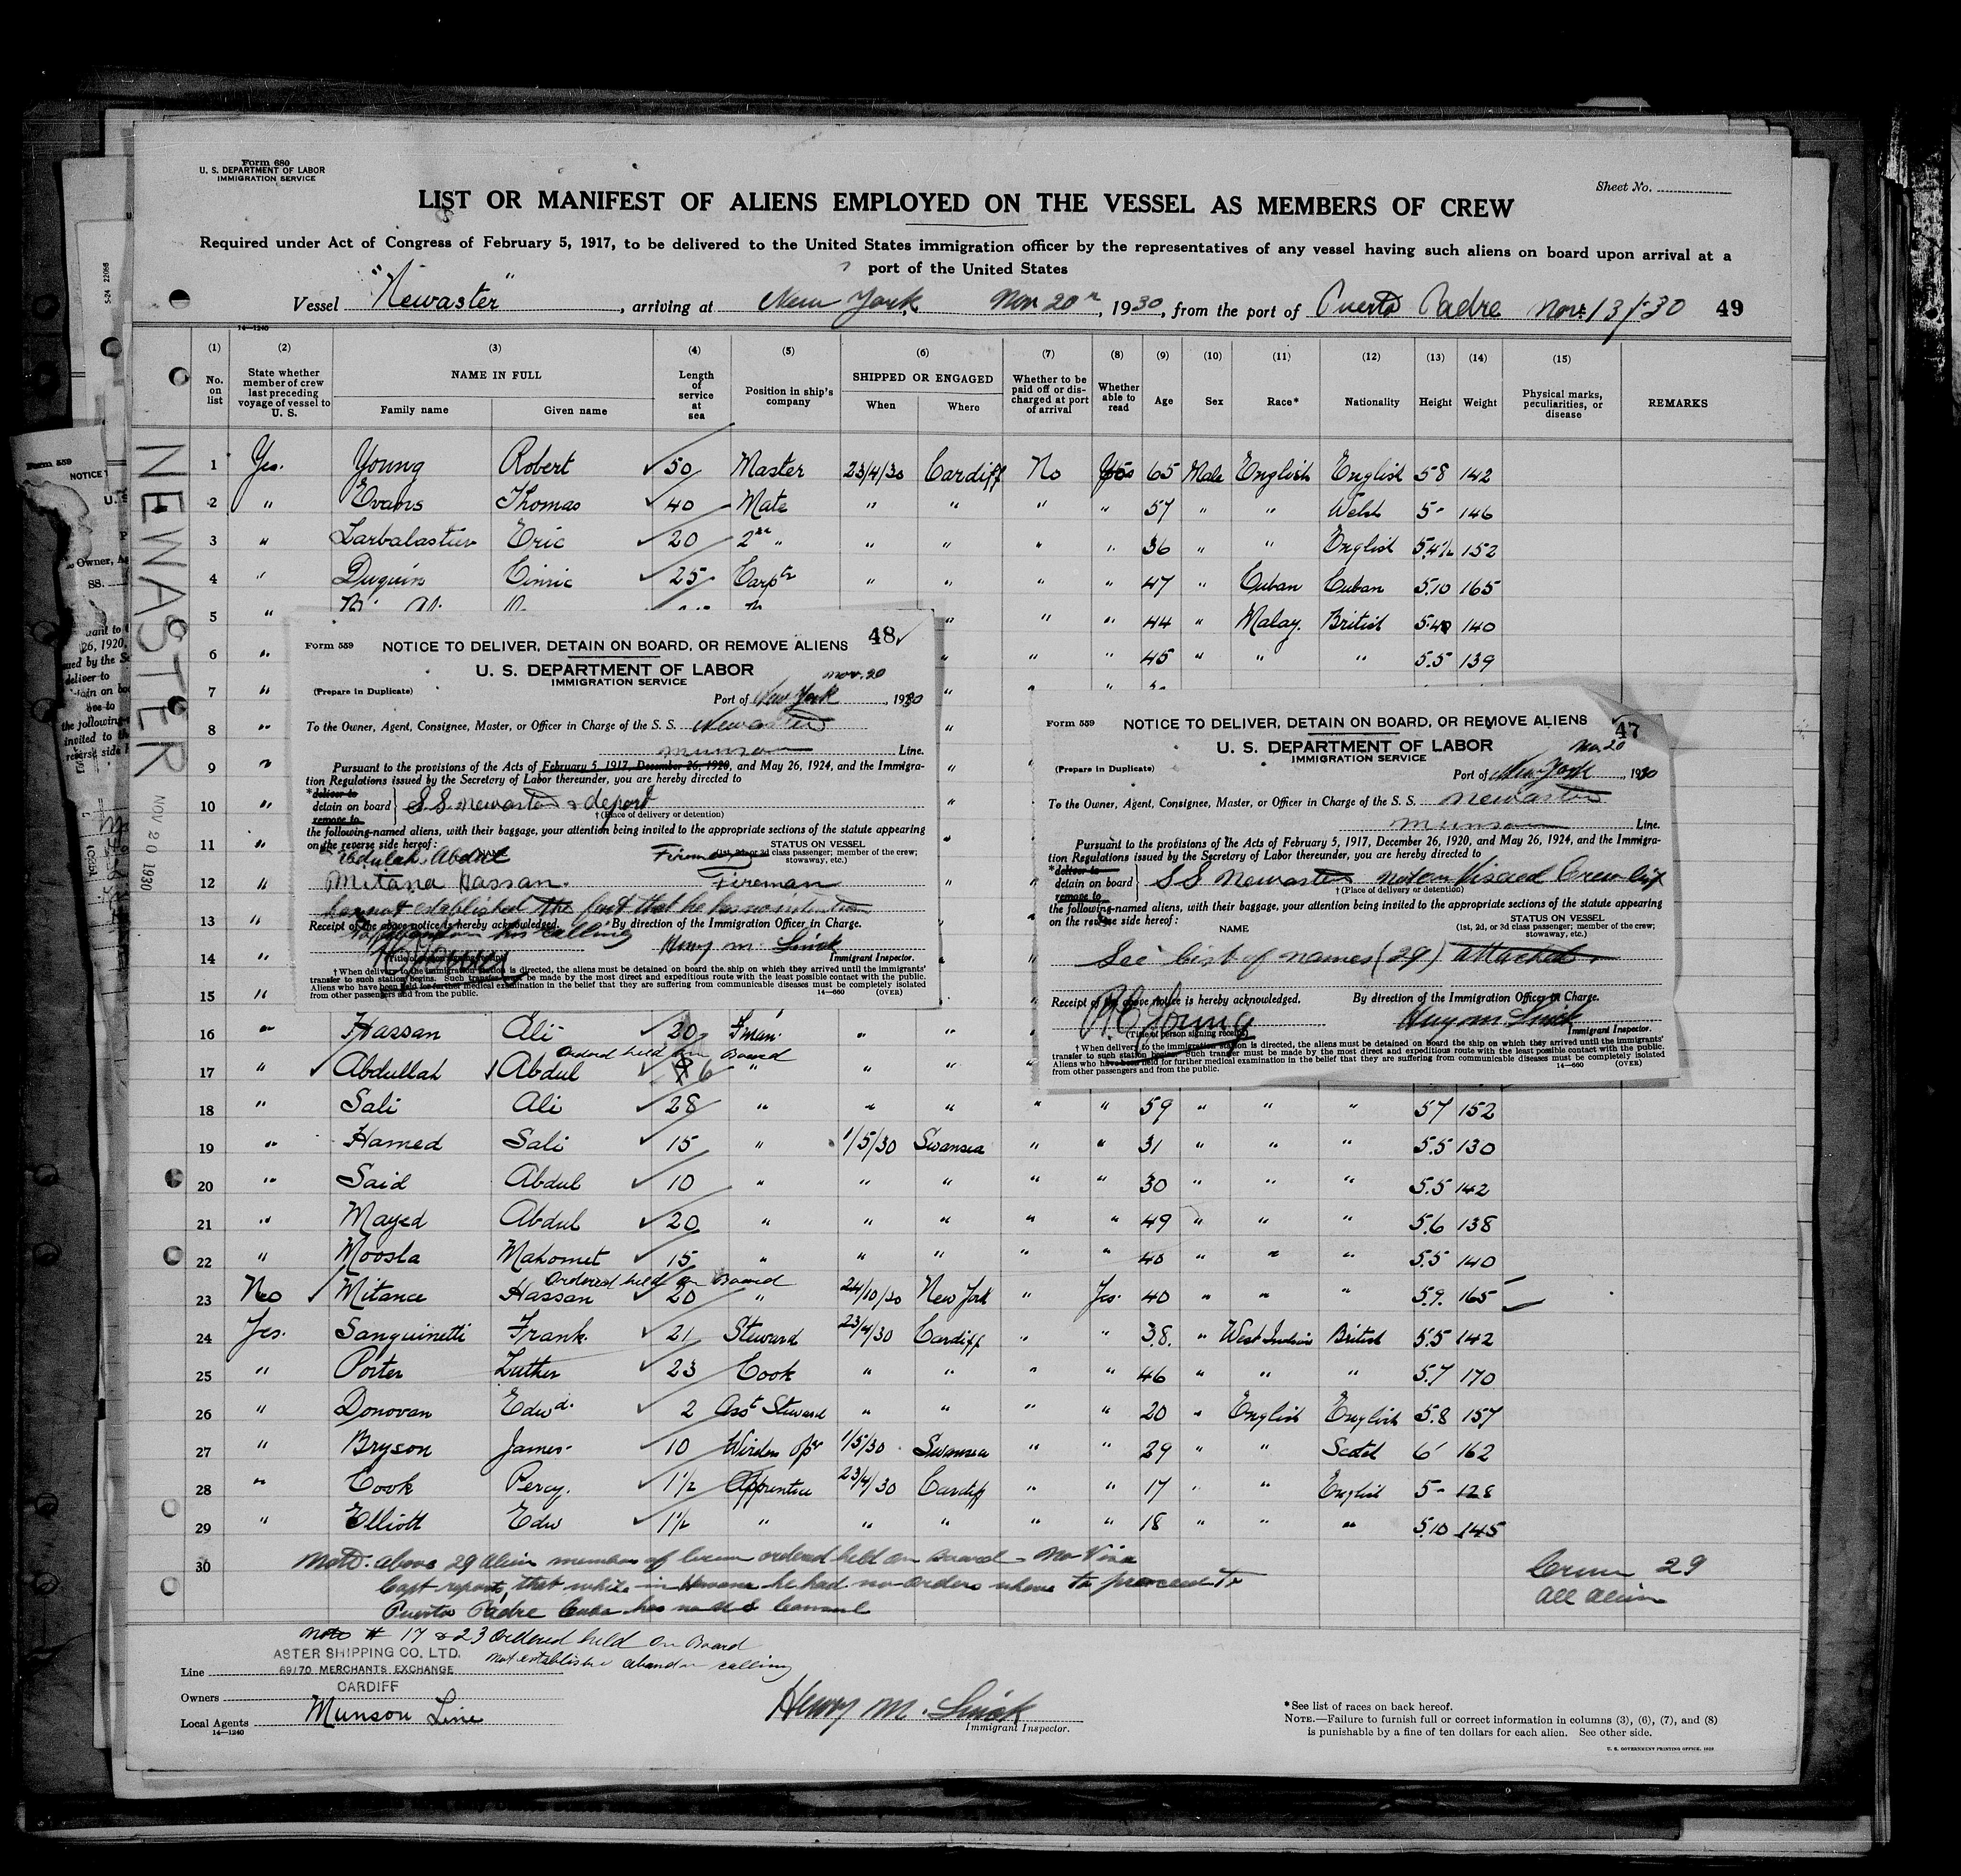 Form 680
U. S. DEPARTMENT OF LABOR
IMMIGRATION SERVICE
Sheet No.
LIST OR MANIFEST OF ALIENS EMPLOYED ON THE VESSEL AS MEMBERS OF CREW
Required under Act of Congress of February 5, 1917, to be delivered to the United States immigration officer by the representatives of any vessel having such aliens on board upon arrival at a
port of the United States
Vessel "Newaster", arriving at New York, Nov 20th, 1930, from the port of Puerto Padre Nov. 13/-30 49
14—1240
(1) (2) (3) (4) (5) (6) (7) (8) (9) (10) (11) (12) (13) (14) (15)
No. on list State whether member of crew last preceding voyage of vessel to U. S. NAME IN FULL Length of service at sea Position in ship's company SHIPPED OR ENGAGED Whether to be paid off or discharged at port of arrival Whether able to read Age Sex Race* Nationality Height Weight Physical marks, peculiarities, or disease REMARKS
Family name Given name When Where
1 Yes. Young Robert 50 Master 23/4/30 Cardiff No Yes 65 Male English English 58 142
2 " Evans Thomas 40 Mate " " " " 57 " " Welsh 5- 146
3 " Larbalastier Eric 20 2nd " " " " " 36 " " English 5.4½ 152
4 " Duquin 25 Carptr " " " " 47 " Cuban Cuban 5.10 165
5 " " " " 44 " Malay. British 140
6 " " " " 45 " " " 5.5 139
7 " " " "
8 " "
9 " "
10 " "
11 " "
12 " "
13 " "
14 " "
15 " "
16 " Hassan Ali 20 Fman. " "
Ordered held on Board
17 " Abdullah Abdul 6 " " " "
18 " Sali Ali 28 " " " " " 59 " " " 57 152
19 " Hamed Sali 15 " 1/5/30 Swansea " " 31 " " " 5.5 130
20 " Said Abdul 10 " " " " " 30 " " " 5.5 142
21 " Mayed Abdul 20 " " " " " 49 " " " 5.6 138
22 " Moosla Mahomet 15 " " " " " 40 " " " 5.5 140
Ordered held on Board
23 No Mitance Hassan 20 " 24/10/30 New York " Yes. 40 " " " 5.9. 165
24 Yes. Sanguinetti Frank. 21 Steward 23/4/30 Cardiff " " 38. " West Indian British 5.5 142
25 " Porter Luther 23 Cook " " " " 46 " " " 5.7 170
26 " Donovan Edwd. 2 Asst Steward " " " " 20 " English English 5.8 157
27 " Bryson James 10 Wireless Opr 1/5/30 Swansea " " 29 " " Scotch 6' 162
28 " Cook Percy. 1½ Apprentice 23/4/30 Cardiff " " 17 " " English 5- 128
29 " Elliott Edw 1½ " " " " " 18 " " " 5.10 145
30 Note. above 29 Alien members of Crew ordered held on Board - No Visa
Capt reports that while in Havana he had no orders where to proceed to
Puerto Padre Cuba has no U S Consul
Crew 29
All Alien
Note # 17 & 23 Ordered held on Board
Not establishe abandon calling
Line ASTER SHIPPING CO. LTD.
69/70 MERCHANTS EXCHANGE
CARDIFF
Owners
Local Agents Munson Line
14—1240
Henry M. Smick
Immigrant Inspector.
*See list of races on back hereof.
NOTE.—Failure to furnish full or correct information in columns (3), (6), (7), and (8)
is punishable by a fine of ten dollars for each alien. See other side.
U. S. GOVERNMENT PRINTING OFFICE. 1928
NEWASTER
NOV 20 1930
Form 559 NOTICE TO DELIVER, DETAIN ON BOARD, OR REMOVE ALIENS 48
U. S. DEPARTMENT OF LABOR
IMMIGRATION SERVICE
(Prepare in Duplicate)
Port of New York Nov. 20, 1930
To the Owner, Agent, Consignee, Master, or Officer in Charge of the S. S. Newaster
Munson Line.
Pursuant to the provisions of the Acts of February 5, 1917, December 26, 1920, and May 26, 1924, and the Immigra-
tion Regulations issued by the Secretary of Labor thereunder, you are hereby directed to
*deliver to
detain on board S.S. Newaster & deport
remove to
†(Place of delivery or detention)
the following-named aliens, with their baggage, your attention being invited to the appropriate sections of the statute appearing
on the reverse side hereof:
STATUS ON VESSEL
(1st, 2d, or 3d class passenger; member of the crew; stowaway, etc.)
Abdulah, Abdul Fireman
Mitana Hassan. Fireman
has not established the fact that he has no intention
Receipt of the above notice is hereby acknowledged. By direction of the Immigration Officer in Charge.
his calling
Henry M. Smick
(Title of person signing receipt)
Immigrant Inspector.
†When delivery to the immigration station is directed, the aliens must be detained on board the ship on which they arrived until the immigrants'
transfer to such station begins. Such transfer must be made by the most direct and expeditious route with the least possible contact with the public.
Aliens who have been held for further medical examination in the belief that they are suffering from communicable diseases must be completely isolated
from other passengers and from the public.
14—660 (OVER)
Form 559 NOTICE TO DELIVER, DETAIN ON BOARD, OR REMOVE ALIENS 47
U. S. DEPARTMENT OF LABOR
IMMIGRATION SERVICE
(Prepare in Duplicate)
Port of New York Nov. 20, 1930
To the Owner, Agent, Consignee, Master, or Officer in Charge of the S. S. Newaster
Munson Line.
Pursuant to the provisions of the Acts of February 5, 1917, December 26, 1920, and May 26, 1924, and the Immigra-
tion Regulations issued by the Secretary of Labor thereunder, you are hereby directed to
*deliver to
detain on board S.S. Newaster not on Visaed Crew list
remove to
†(Place of delivery or detention)
the following-named aliens, with their baggage, your attention being invited to the appropriate sections of the statute appearing
on the reverse side hereof:
NAME
STATUS ON VESSEL
(1st, 2d, or 3d class passenger; member of the crew; stowaway, etc.)
See List of names (29) attached.
Receipt of the above notice is hereby acknowledged. By direction of the Immigration Officer in Charge.
Young
Henry M Smick
(Title of person signing receipt)
Immigrant Inspector.
†When delivery to the immigration station is directed, the aliens must be detained on board the ship on which they arrived until the immigrants'
transfer to such station begins. Such transfer must be made by the most direct and expeditious route with the least possible contact with the public.
Aliens who have been held for further medical examination in the belief that they are suffering from communicable diseases must be completely isolated
from other passengers and from the public.
14—660 (OVER)